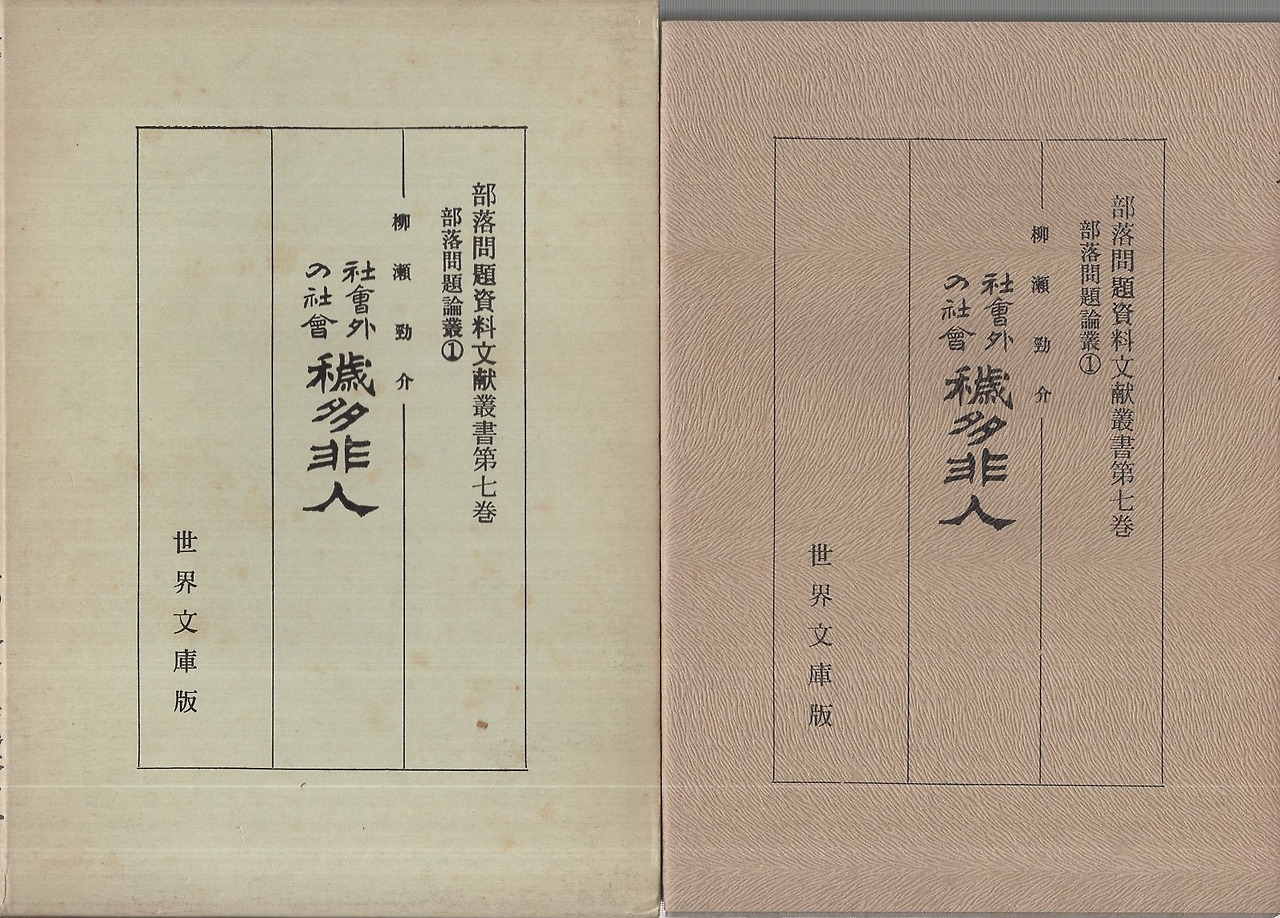 部落問題資料文献叢書第七巻
部落問題論叢①
柳瀬勁介
社會外
の社會
穢多非人
世界文庫版
部落問題資料文献叢書第七巻
部落問題論叢①
柳瀬勁介
社會外
の社會
穢多非人
世界文庫版